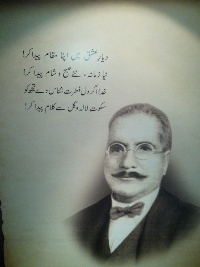 دیارِ عشق میں اپنا مقام پیدا کر!
نیا زمانہ، نئے صبح و شام پیدا کر!
خدا اگر دلِ فطرت شناس دے تجھ کو
سکوتِ لالہ و گل سے کلام پیدا کر!